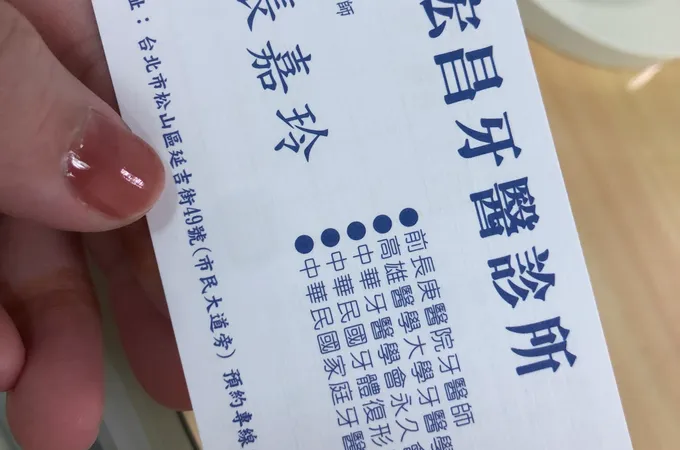 宏昌牙醫診所
前長庚醫院牙醫師
高雄醫學大學牙醫學
中華牙醫學會永久會
中華民國牙體復形
中華民國家庭牙醫
師
張嘉玲
址：台北市松山區延吉街49號(市民大道旁) 預約專線